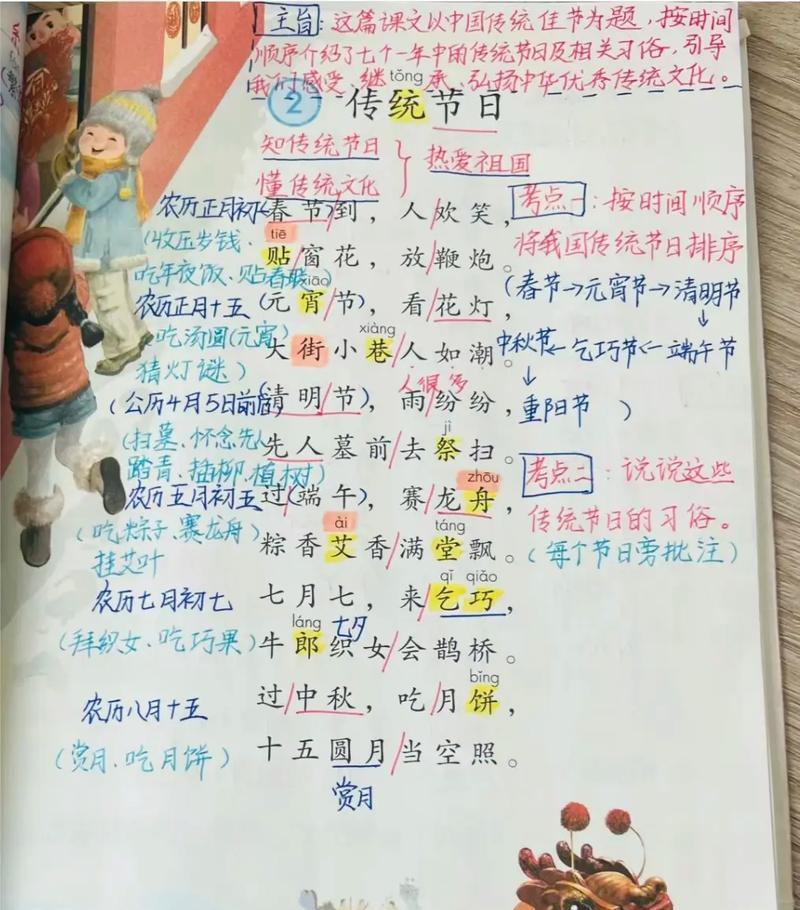 主旨：这篇课文以中国传统佳节为题，按时间
顺序介绍了七个一年中的传统节日及相关习俗，引导
我们感受、继承、弘扬中华优秀传统文化。
tǒng
2 传统节日
知传统节日
懂传统文化
热爱祖国
农历正月初一
(春节)到，人/欢笑，
(收压岁钱、
吃年夜饭、贴春联)
tiē
贴/窗花，放/鞭炮。
农历正月十五
xiāo
(元宵/节)，看/花灯，
吃汤圆(元宵)
猜灯谜)
xiàng
大街小巷/人如潮。
人很多
(公历4月5日前后
(清明/节)，雨/纷纷，
(扫墓、怀念先人
踏青、插柳、植树)
jì
先人墓前/去祭扫。
农历五月初五
zhōu
过(端午)，赛/龙舟，
(吃粽子、赛龙舟)
挂艾叶
ài táng
粽香艾香/满堂飘。
农历七月初七
qǐ qiǎo
七月七，来/乞巧，
(拜织女、吃巧果)
láng
七夕
牛郎织女/会鹊桥。
农历八月十五
bǐng
过/中秋，吃/月饼，
(赏月、吃月饼)
十五圆月/当空照。
赏月
考点一：按时间顺序
将我国传统节日排序
(春节→元宵节→清明节
↓
中秋节←乞巧节←端午节
↓
重阳节)
考点二：说说这些
传统节日的习俗。
(每个节日旁批注)